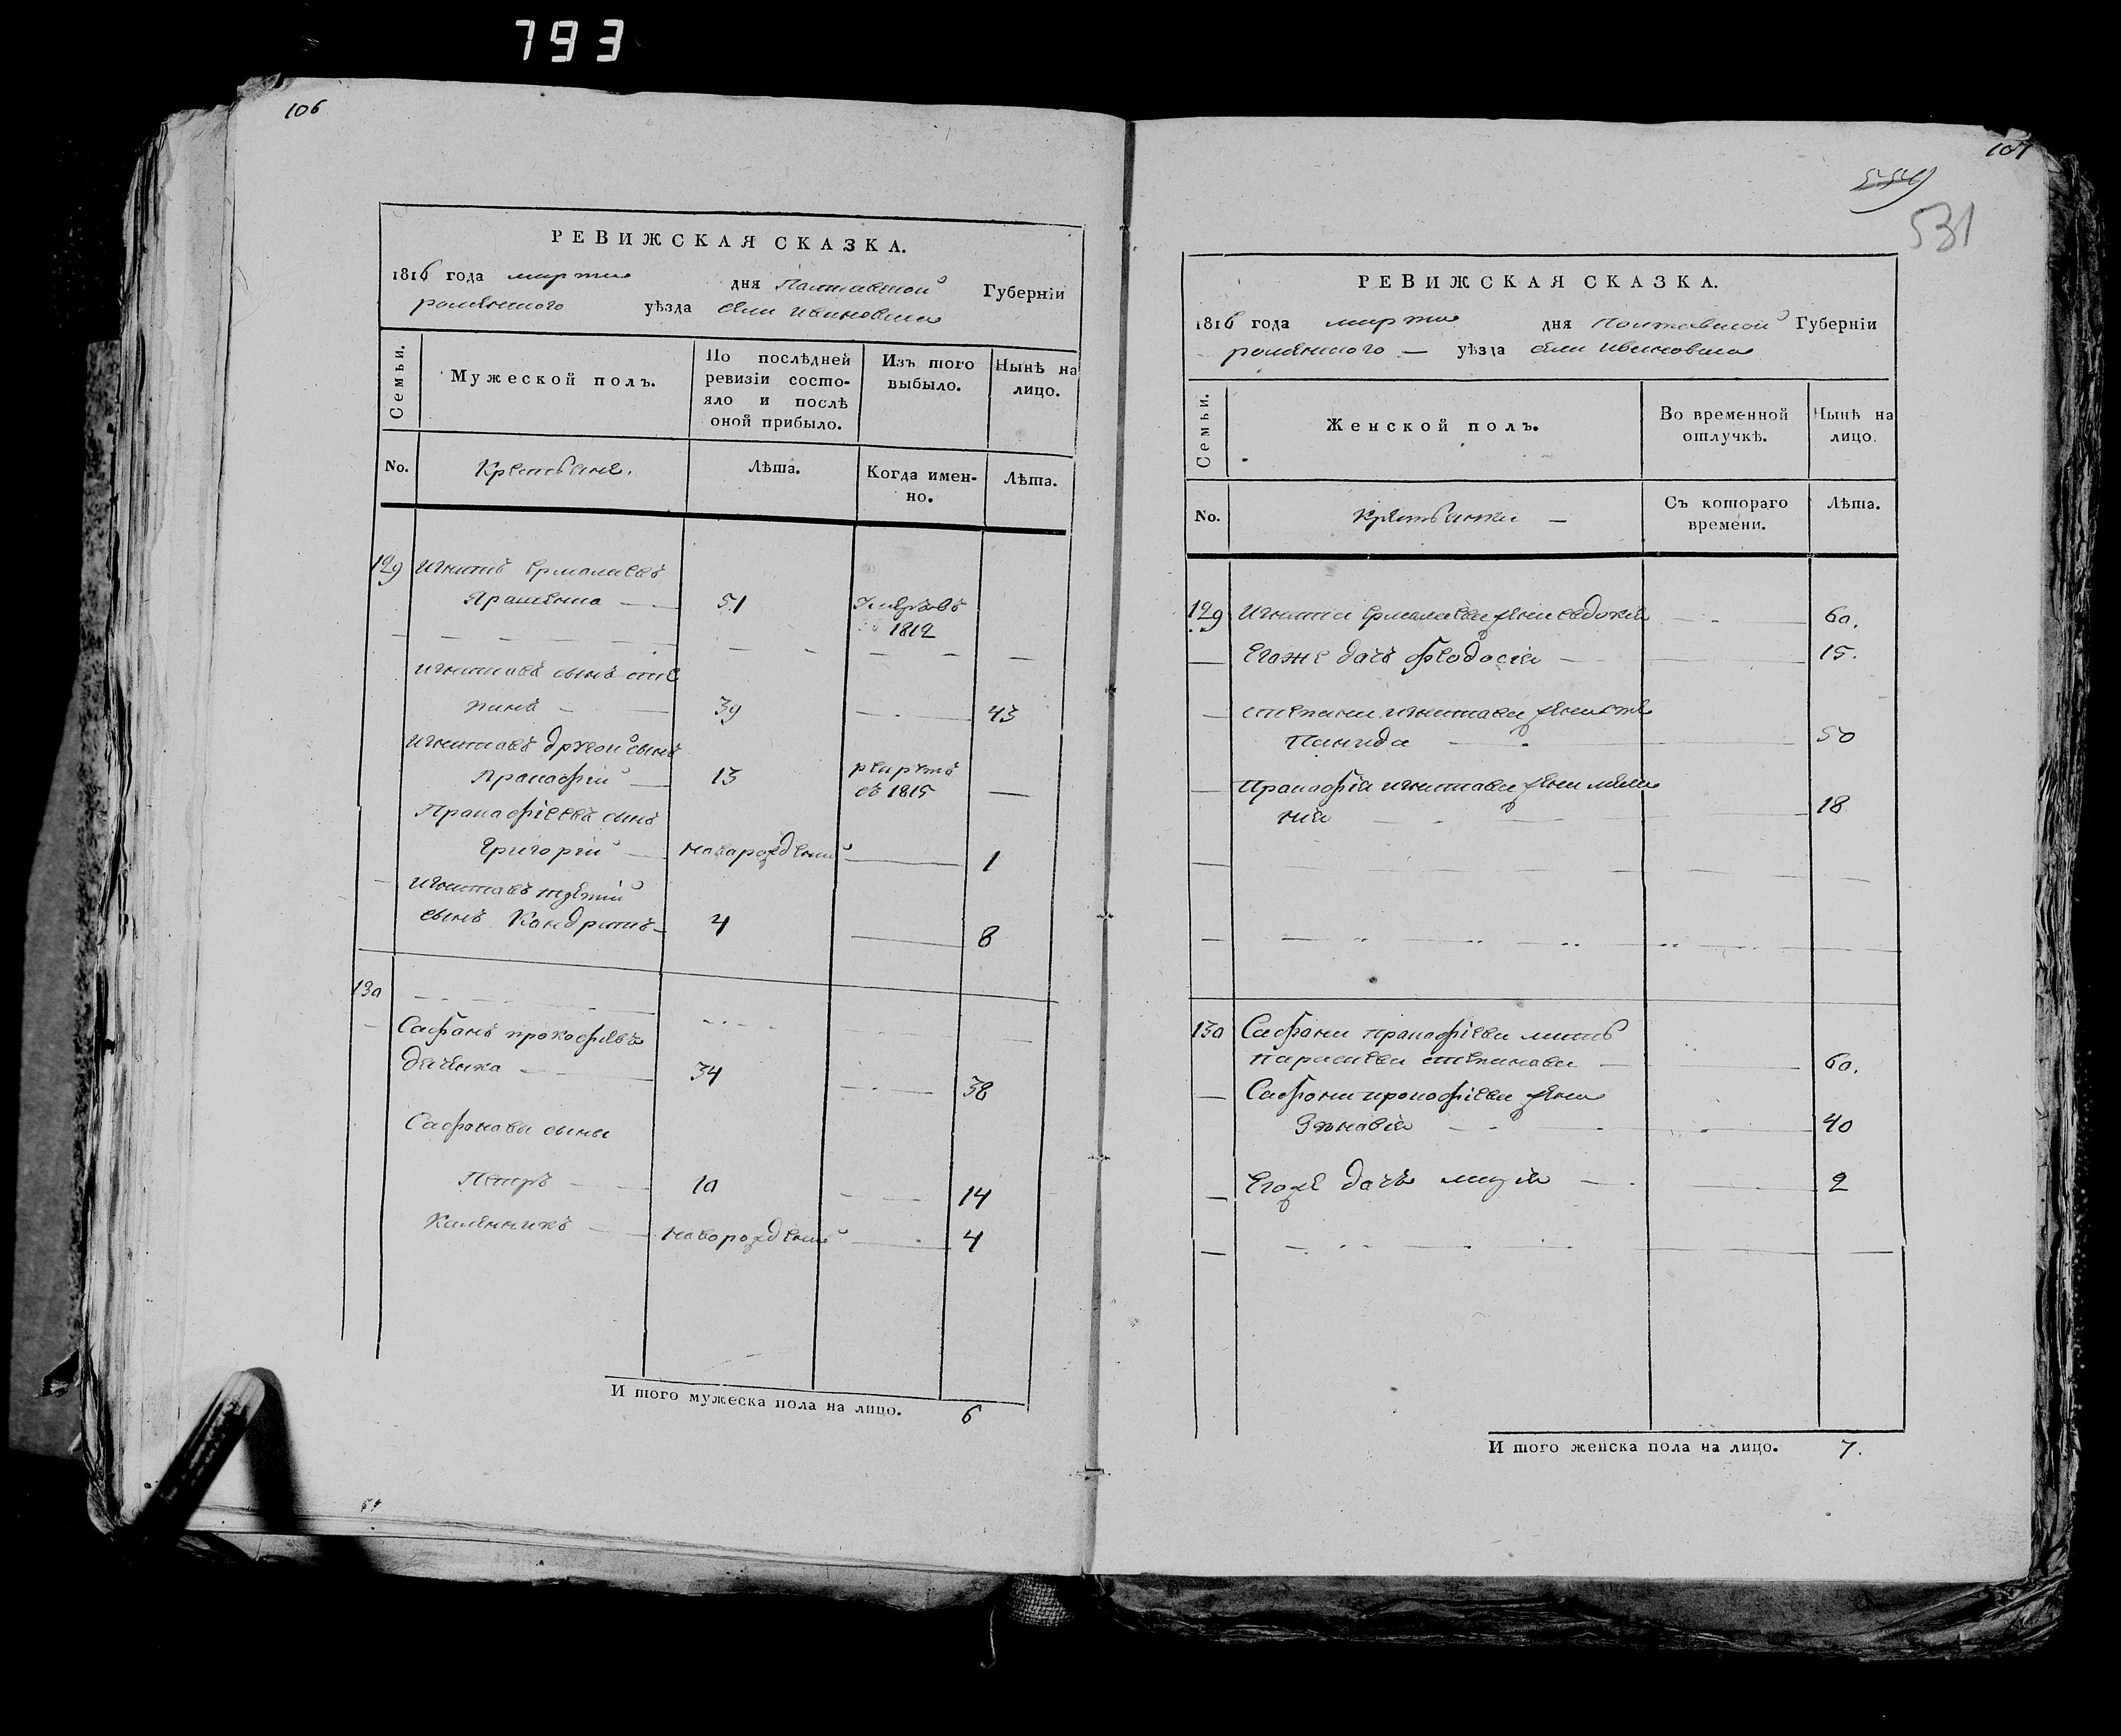 793
106
РЕВИЖСКАЯ СКАЗКА.
1816 года марта дня Полтавской Губерніи
роменского уѣзда села ивановки
Семьи.
Мужеской полъ.
По послѣдней ревизіи состо-
яло и послѣ
оной прибыло.
Изъ того
выбыло.
Нынѣ на
лицо.
No.
Крестьяне.
Лѣта.
Когда имен-
но.
Лѣта.
129 Игнатъ ермолаевъ
51 умеръ въ
1812
Игнатовъ сынъ сте
панъ 39 43
Игнатовъ другой сынъ
Прокофій 13 рекрутъ
въ 1815
Прокофіевъ сынъ
Григорій новорожденный 1
Игнатовъ третій
сынъ Кондратъ 4 8
130
Сафонъ прокофьевъ
34 38
Сафоновы сыны
Петръ 10 14
Каленникъ новорожденный 4
И того мужеска пола на лицо. 6
107
531
РЕВИЖСКАЯ СКАЗКА.
1816 года марта дня Полтавской Губерніи
роменского уѣзда села ивановки
Семьи.
Женской полъ.
Во временной
отлучкѣ.
Нынѣ на
лицо.
No.
Крестьянки
Съ котораго
времени.
Лѣта.
129 Игната ермолаева жена евдокия 60.
Егоже дочь феодосия 15.
степана игнатова жена сте
панида 50
Прокофія игнатова жена мела
нія 18
130 Сафона прокофіева мать
параскева степанова 60.
Сафона прокофіева жена
Зѣновія 40
Егоже дочь 2
И того женска пола на лицо. 7.